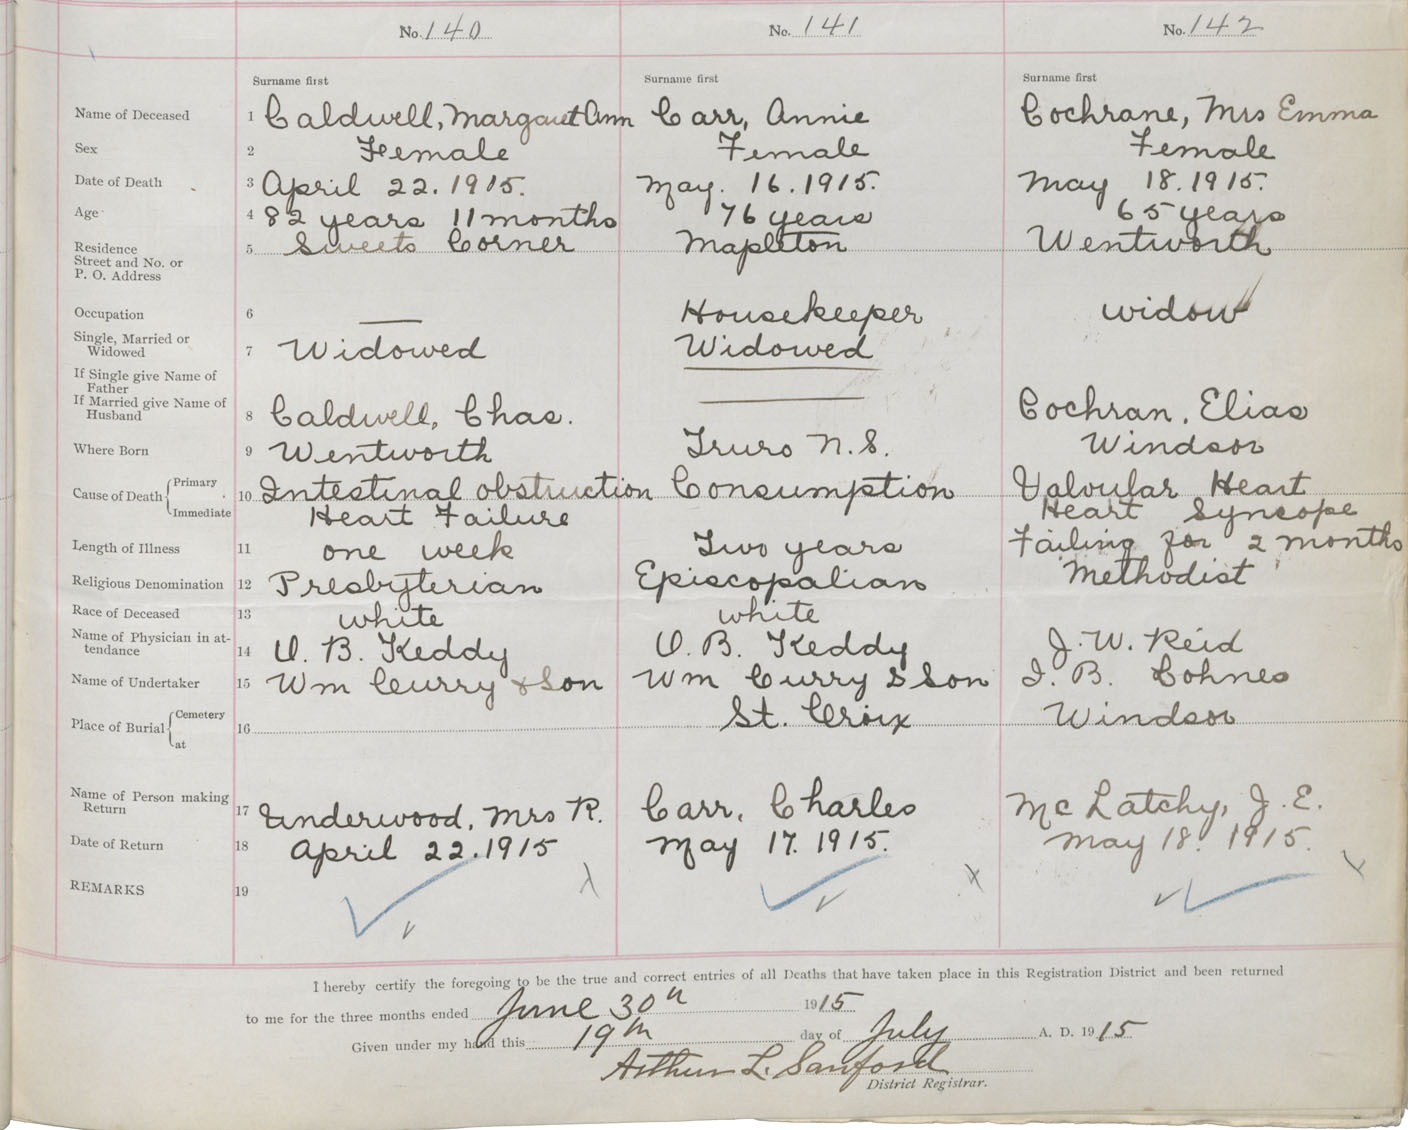 No. 140 No. 141 No. 142
Surname first Surname first Surname first
Name of Deceased 1 Caldwell, Margaret Ann Carr, Annie Cochrane, Mrs Emma
Sex 2 Female Female Female
Date of Death 3 April 22. 1915. May. 16. 1915. May 18. 1915.
Age 4 82 years 11 months 76 years 65 years
Residence 5 Sweets Corner Mapleton Wentworth
Street and No. or
P. O. Address
Occupation 6 — Housekeeper widow
Single, Married or
Widowed 7 Widowed Widowed
If Single give Name of
Father
If Married give Name of
Husband 8 Caldwell, Chas. — Cochran, Elias
Where Born 9 Wentworth Truro N.S. Windsor
Cause of Death { Primary 10 Intestinal obstruction Consumption Valvular Heart
Immediate Heart Failure Heart Syncope
Length of Illness 11 one week Two years Failing for 2 months
Religious Denomination 12 Presbyterian Episcopalian Methodist
Race of Deceased 13 white white
Name of Physician in at-
tendance 14 O. B. Keddy O. B. Keddy J. W. Reid
Name of Undertaker 15 Wm Curry & Son Wm Curry & Son I. B. Cohnes
Place of Burial { Cemetery 16 St. Croix Windsor
at
Name of Person making
Return 17 Underwood, Mrs R. Carr, Charles McLatchy, J. E.
Date of Return 18 April 22. 1915 May 17. 1915. May 18. 1915.
REMARKS 19
I hereby certify the foregoing to be the true and correct entries of all Deaths that have taken place in this Registration District and been returned
to me for the three months ended June 30th 1915
Given under my hand this 19th day of July A. D. 1915
Arthur L. Sanford
District Registrar.